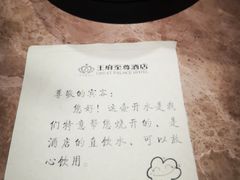 王府至尊酒店
GREAT PALACE HOTEL
尊敬的宾客：
您好！这壶开水是我
们特意帮您烧开的、是
酒店的直饮水、可以放
心饮用。